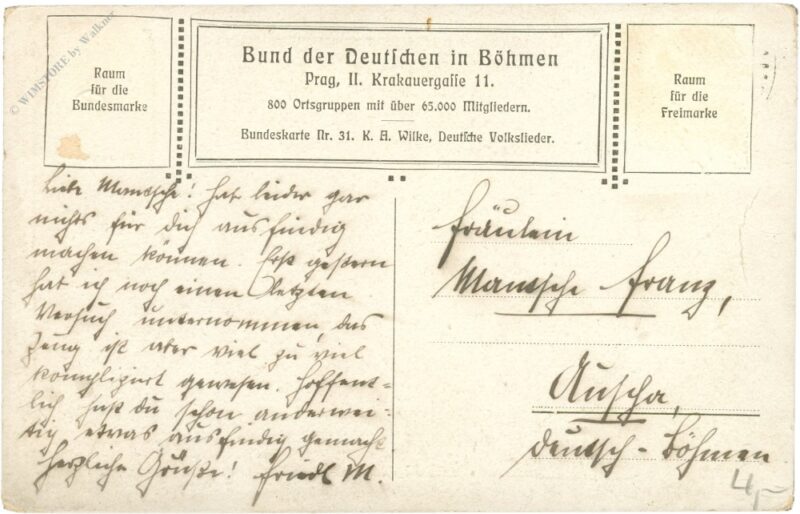 © WIMSTORE by Walkner
Raum
für die
Bundesmarke
Bund der Deutschen in Böhmen
Prag, II. Krakauergasse 11.
800 Ortsgruppen mit über 65.000 Mitgliedern.
Bundeskarte Nr. 31. K. A. Wilke, Deutsche Volkslieder.
Raum
für die
Freimarke
Liebe Mantsche! hat leider gar
nichts für dich ausfindig
machen können. Erst gestern
hat ich noch einen letzten
Versuch unternommen, das
Zeug ist aber viel zu viel
kompliziert gewesen. Hoffent-
lich hast du schon anderwei-
tig etwas ausfindig gemacht
herzliche Grüße! Friedl M.
Fräulein
Mantsche Franz,
Auscha,
Deutsch-Böhmen
4,-